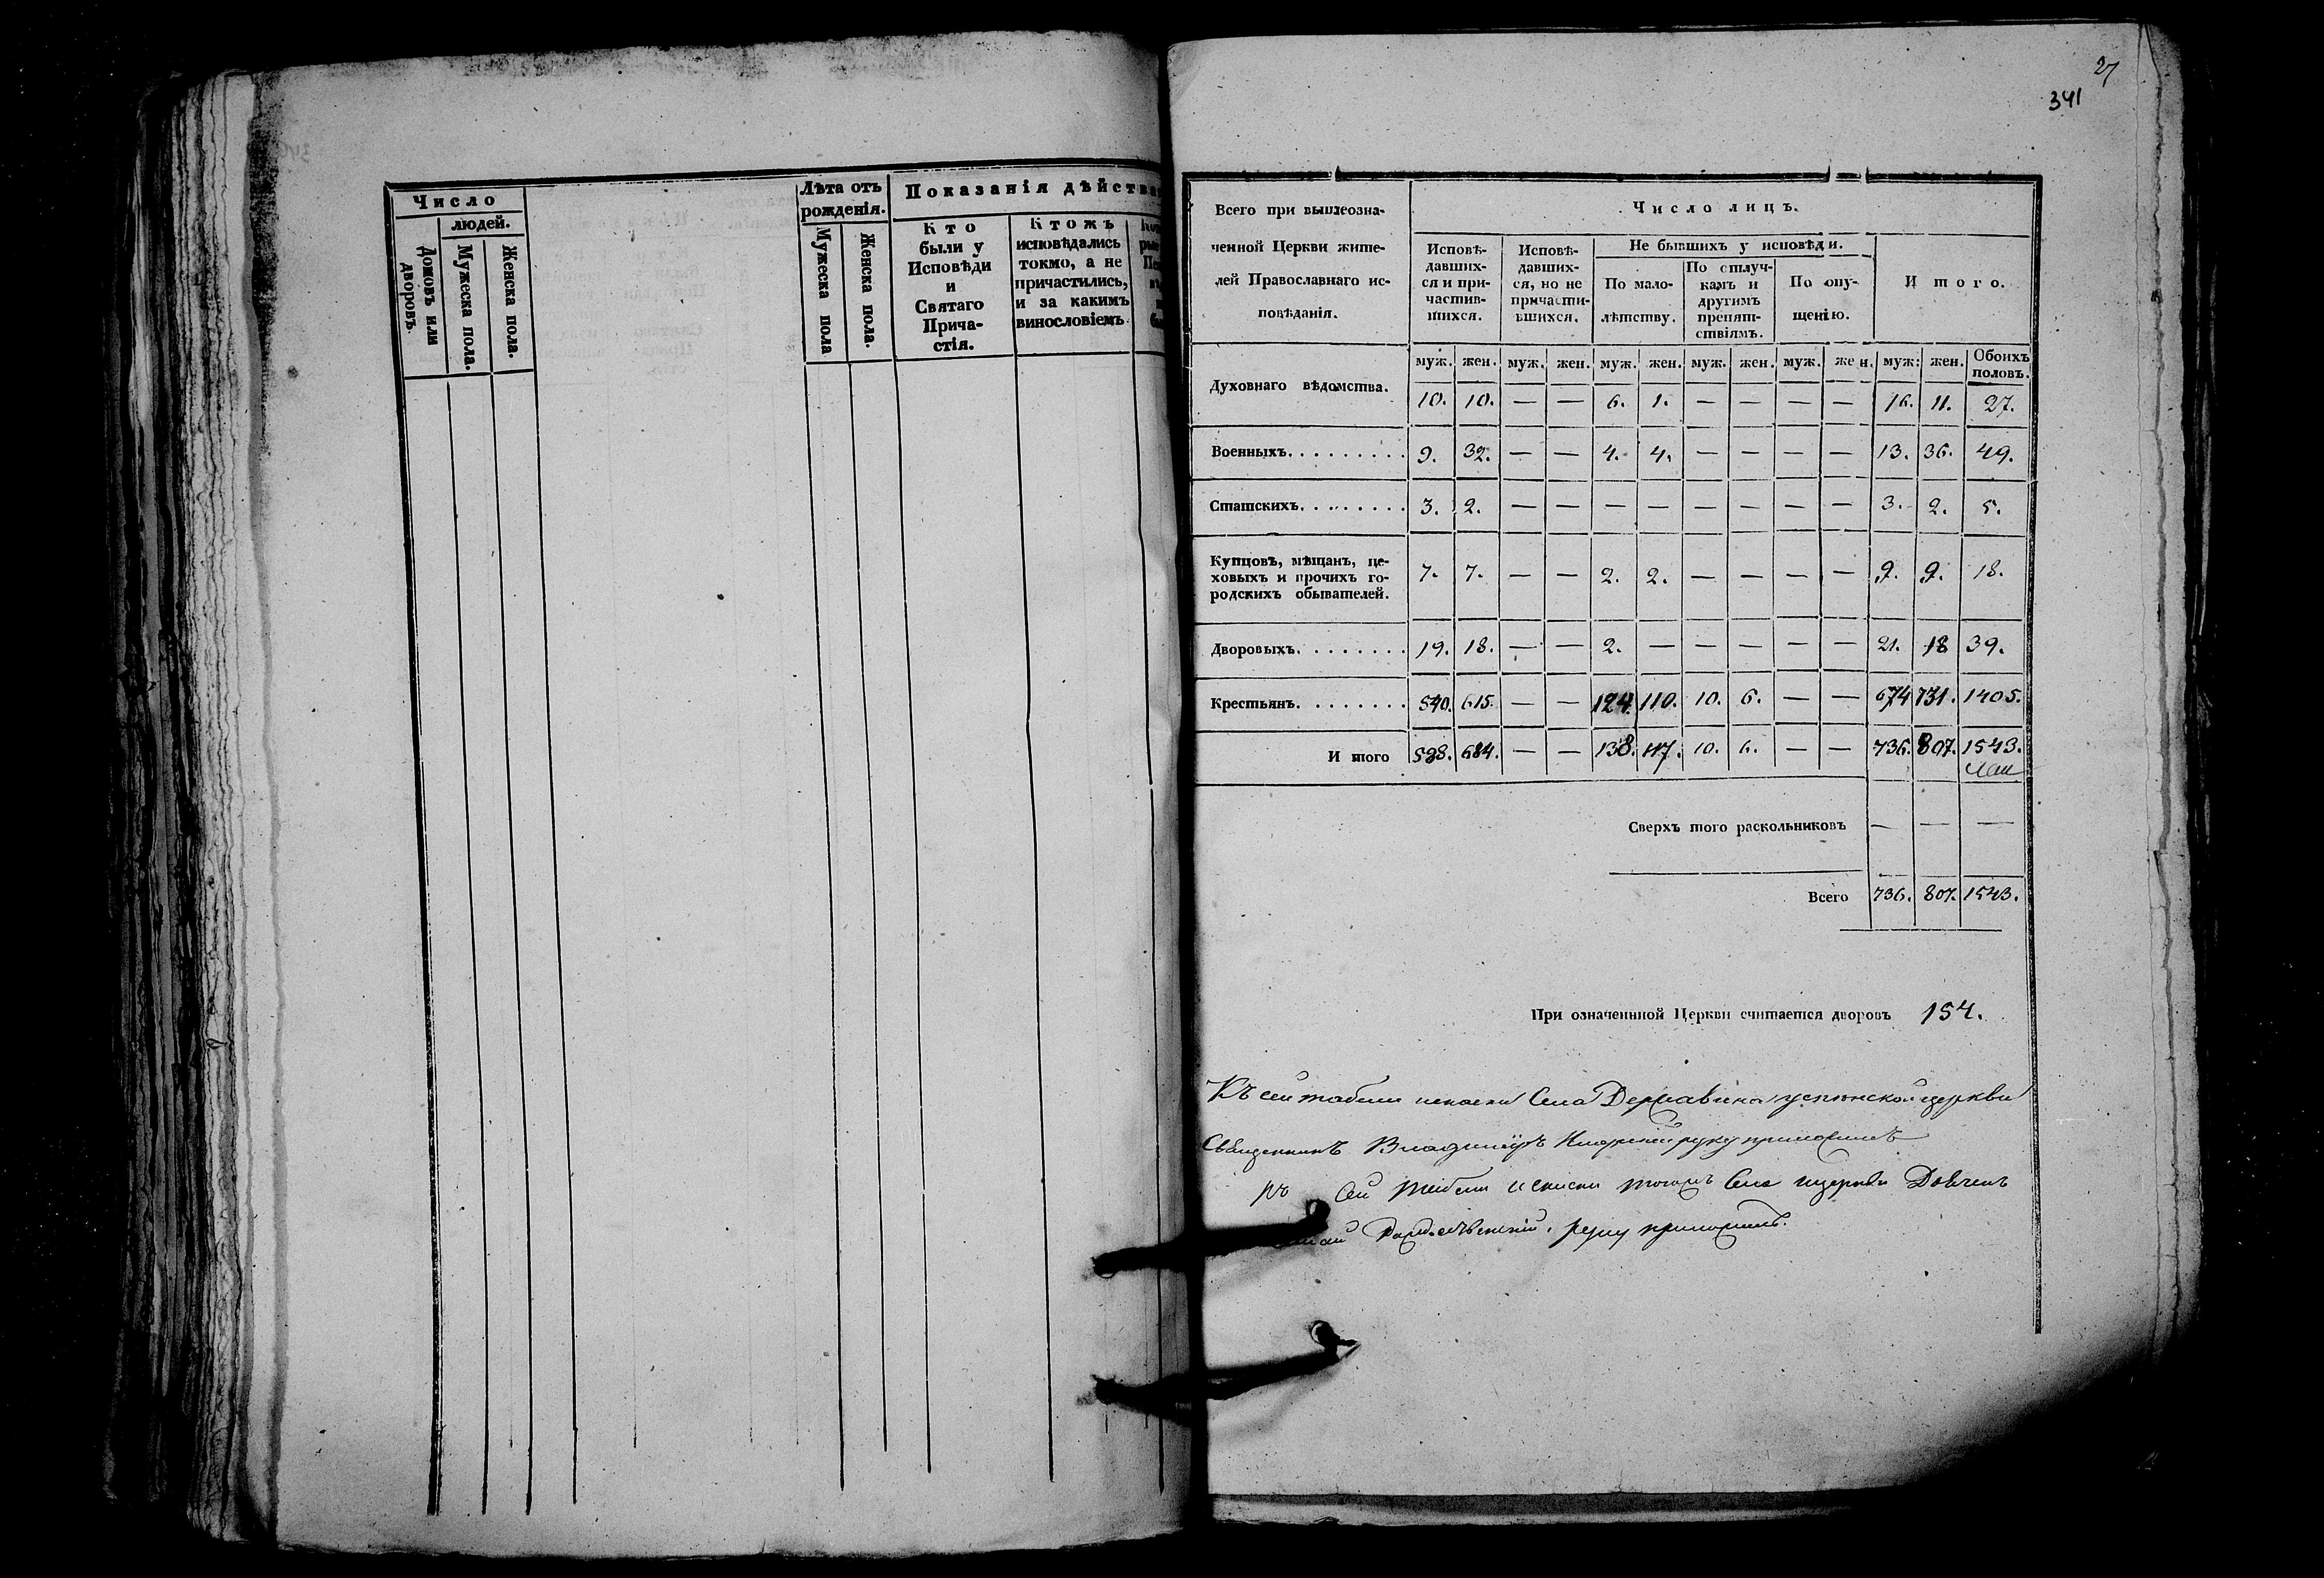 27
341
Число
людей.
Домовъ или дворовъ.
Мужеска пола.
Женска пола.
Лѣта отъ
рожденія.
Мужеска пола
Женска пола.
Показанія дѣйства
Кто
были у
Исповѣди
и
Святаго
Прича-
стія.
Ктожъ
исповѣдались
токмо, а не
причастились,
и за какимъ
винословіемъ
Всего при вышеозна-
ченной Церкви жите-
лей Православнаго ис-
повѣданія.
Число лицъ.
Исповѣ-
давших-
ся и при-
частив-
шихся.
Исповѣ-
давших-
ся, но не
причасти-
вшихся.
Не бывшихъ у исповѣди.
По мало-
лѣтству.
По отлуч-
камъ и
другимъ
препят-
ствіямъ.
По опу-
щенію.
Итого.
муж. жен. муж. жен. муж. жен. муж. жен. муж. жен. муж: жен. Обоихъ половъ.
Духовнаго вѣдомства. 10. 10. — — 6. 1. — — — — 16. 11. 27.
Военныхъ. . . . . . . . . 9. 32. — — 4. 4. — — — — 13. 36. 49.
Статскихъ. . . . . . . . 3. 2. — — — — — — — — 3. 2. 5.
Купцовъ, мѣщанъ, це-
ховыхъ и прочихъ го-
родскихъ обывателей. 7. 7. — — 2. 2. — — — — 9. 9. 18.
Дворовыхъ. . . . . . . . 19. 18. — — 2. — — — — — 21. 18 39.
Крестьянъ. . . . . . . . 540. 615. — — 124. 110. 10. 6. — — 674 731. 1405.
И того 588. 684. — — 138. 117. 10. 6. — — 736. 807. 1543.
Сверхъ того раскольниковъ — — —
Всего 736. 807. 1543.
При означеннной Церкви считается дворовъ 154.
Къ сей табели Села Державина церкви
Священникъ Владимиръ руку приложилъ
Къ Сей табели тогожъ Села церкви
Рождественскій руку приложилъ.